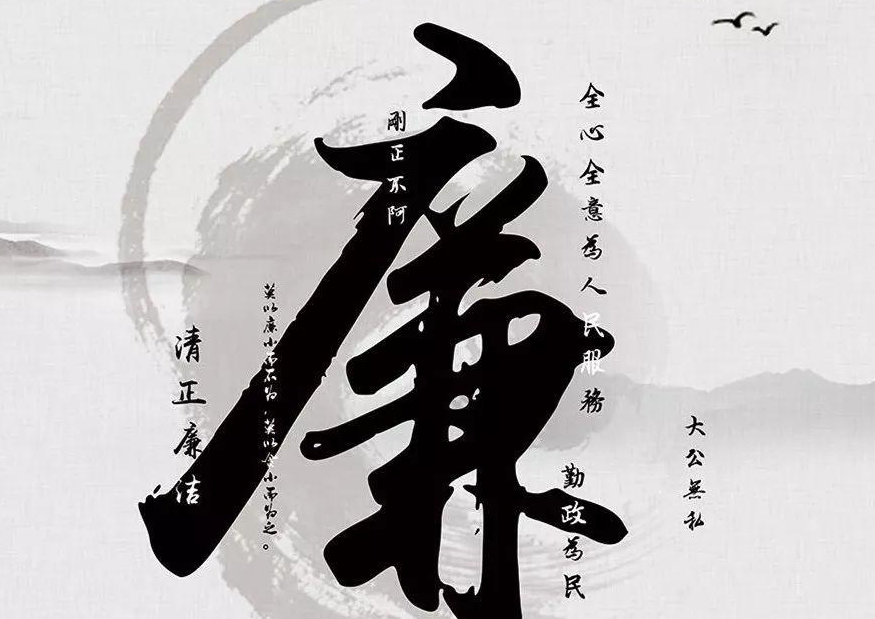 廉
全心全意為人民服務
剛正不阿
大公無私
勤政為民
莫以廉小而不为，莫以贪小而为之。
清正廉洁